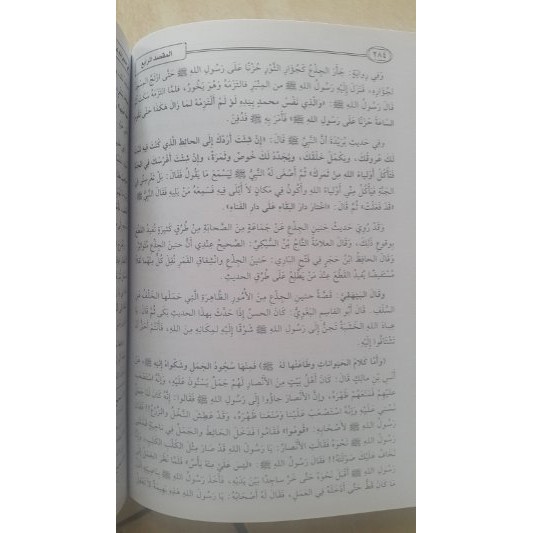 ٢٨٤
المقصد الرابع
وَفِي رِوَايَةٍ: جَأَرَ الْجِذْعُ كَجُؤَارِ الثَّوْرِ حُزْنًا عَلَى رَسُولِ اللهِ ﷺ حَتَّى ارْتَجَّ
لِجُؤَارِهِ، فَنَزَلَ إِلَيْهِ رَسُولُ اللهِ ﷺ مِنَ الْمِنْبَرِ فَالْتَزَمَهُ وَهُوَ يَخُورُ، فَلَمَّا الْتَزَمَهُ سَكَتَ
قَالَ رَسُولُ اللهِ ﷺ: «وَالَّذِي نَفْسُ مُحَمَّدٍ بِيَدِهِ لَوْ لَمْ أَلْتَزِمْهُ لَمَا زَالَ هَكَذَا حَتَّى
السَّاعَةِ حُزْنًا عَلَى رَسُولِ اللهِ ﷺ» فَأَمَرَ بِهِ ﷺ فَدُفِنَ.
وَفِي حَدِيثِ بُرَيْدَةَ أَنَّ النَّبِيَّ ﷺ قَالَ: «إِنْ شِئْتَ أَرُدُّكَ إِلَى الْحَائِطِ الَّذِي كُنْتَ فِيهِ
لَكَ عُرُوقُكَ، وَيَكْمُلُ خَلْقُكَ، وَيُجَدَّدُ لَكَ خُوصٌ وَثَمَرَةٌ، وَإِنْ شِئْتَ أَغْرِسُكَ فِي
فَتَأْكُلُ أَوْلِيَاءُ اللهِ مِنْ ثَمَرِكَ» ثُمَّ أَصْغَى لَهُ النَّبِيُّ ﷺ لِيَسْمَعَ مَا يَقُولُ فَقَالَ: بَلْ تَغْرِسُنِي فِي
الْجَنَّةِ فَيَأْكُلُ مِنِّي أَوْلِيَاءُ اللهِ وَأَكُونُ فِي مَكَانٍ لَا أَبْلَى فِيهِ فَسَمِعَهُ مَنْ يَلِيهِ فَقَالَ النَّبِيُّ ﷺ
«قَدْ فَعَلْتُ» ثُمَّ قَالَ: «اخْتَارَ دَارَ الْبَقَاءِ عَلَى دَارِ الْفَنَاءِ».
وَقَدْ رُوِيَ حَدِيثُ حَنِينِ الْجِذْعِ عَنْ جَمَاعَةٍ مِنَ الصَّحَابَةِ مِنْ طُرُقٍ كَثِيرَةٍ تُفِيدُ
بِوُقُوعِ ذَلِكَ، وَقَالَ الْعَلَّامَةُ التَّاجُ بْنُ السُّبْكِيِّ: الصَّحِيحُ عِنْدِي أَنَّ حَنِينَ الْجِذْعِ
وَقَالَ الْحَافِظُ ابْنُ حَجَرٍ فِي فَتْحِ الْبَارِي: حَنِينُ الْجِذْعِ وَانْشِقَاقُ الْقَمَرِ نُقِلَ كُلٌّ مِنْهُمَا
مُسْتَفِيضًا يُفِيدُ الْقَطْعَ عِنْدَ مَنْ يَطَّلِعُ عَلَى طُرُقِ الْحَدِيثِ.
وَقَالَ الْبَيْهَقِيُّ: قِصَّةُ حَنِينِ الْجِذْعِ مِنَ الْأُمُورِ الظَّاهِرَةِ الَّتِي حَمَلَهَا الْخَلَفُ عَنِ
السَّلَفِ. قَالَ أَبُو الْقَاسِمِ الْبَغَوِيُّ: كَانَ الْحَسَنُ إِذَا حَدَّثَ بِهَذَا الْحَدِيثِ بَكَى ثُمَّ قَالَ: يَا
عِبَادَ اللهِ الْخَشَبَةُ تَحِنُّ إِلَى رَسُولِ اللهِ ﷺ شَوْقًا إِلَيْهِ لِمَكَانِهِ مِنَ اللهِ، فَأَنْتُمْ أَحَقُّ أَنْ
تَشْتَاقُوا إِلَيْهِ.
(وَأَمَّا كَلَامُ الْحَيَوَانَاتِ وَطَاعَتُهَا لَهُ ﷺ) فَمِنْهَا سُجُودُ الْجَمَلِ وَشَكْوَاهُ إِلَيْهِ ﷺ، عَنْ
أَنَسِ بْنِ مَالِكٍ قَالَ: كَانَ أَهْلُ بَيْتٍ مِنَ الْأَنْصَارِ لَهُمْ جَمَلٌ يَسْنُونَ عَلَيْهِ، وَإِنَّهُ اسْتَصْعَبَ
عَلَيْهِمْ فَمَنَعَهُمْ ظَهْرَهُ، وَإِنَّ الْأَنْصَارَ جَاؤُوا إِلَى رَسُولِ اللهِ ﷺ فَقَالُوا: إِنَّهُ كَانَ لَنَا
نَسْنِي عَلَيْهِ وَإِنَّهُ اسْتَصْعَبَ عَلَيْنَا وَمَنَعَنَا ظَهْرَهُ، وَقَدْ عَطِشَ النَّخْلُ وَالزَّرْعُ!! فَقَالَ
رَسُولُ اللهِ ﷺ لِأَصْحَابِهِ: «قُومُوا» فَقَامُوا فَدَخَلَ الْحَائِطَ وَالْجَمَلُ فِي نَاحِيَةٍ
رَسُولُ اللهِ ﷺ نَحْوَهُ فَقَالَتِ الْأَنْصَارُ: يَا رَسُولَ اللهِ قَدْ صَارَ مِثْلَ الْكَلْبِ الْكَلِبِ
نَخَافُ عَلَيْكَ صَوْلَتَهُ!! فَقَالَ رَسُولُ اللهِ ﷺ: «لَيْسَ عَلَيَّ مِنْهُ بَأْسٌ» فَلَمَّا نَظَرَ الْجَمَلُ
رَسُولِ اللهِ ﷺ أَقْبَلَ نَحْوَهُ حَتَّى خَرَّ سَاجِدًا بَيْنَ يَدَيْهِ، فَأَخَذَ رَسُولُ اللهِ ﷺ بِنَاصِيَتِهِ
مَا كَانَ قَطُّ حَتَّى أَدْخَلَهُ فِي الْعَمَلِ، فَقَالَ لَهُ أَصْحَابُهُ: يَا رَسُولَ اللهِ هَذِهِ بَهِيمَةٌ لَا